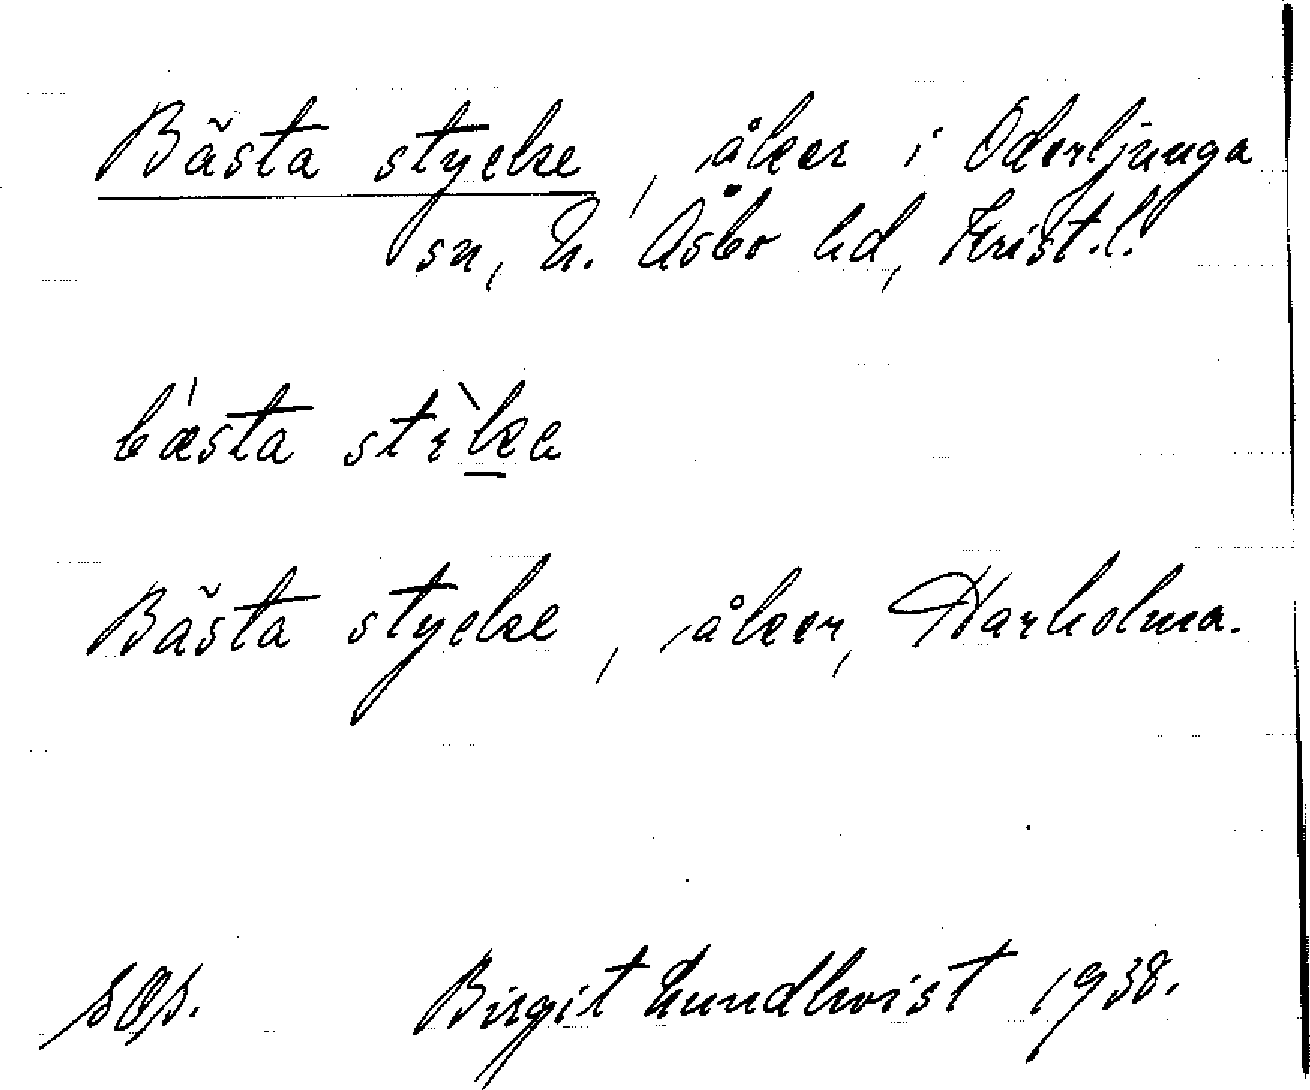 Bästa stycke, åker i Oderljunga
sn, N. Åsbo hd, Krist. l.
bǽsta stỳke
Bästa stycke, åker, Harholma.
sOs. Birgit Lundkvist 1938.